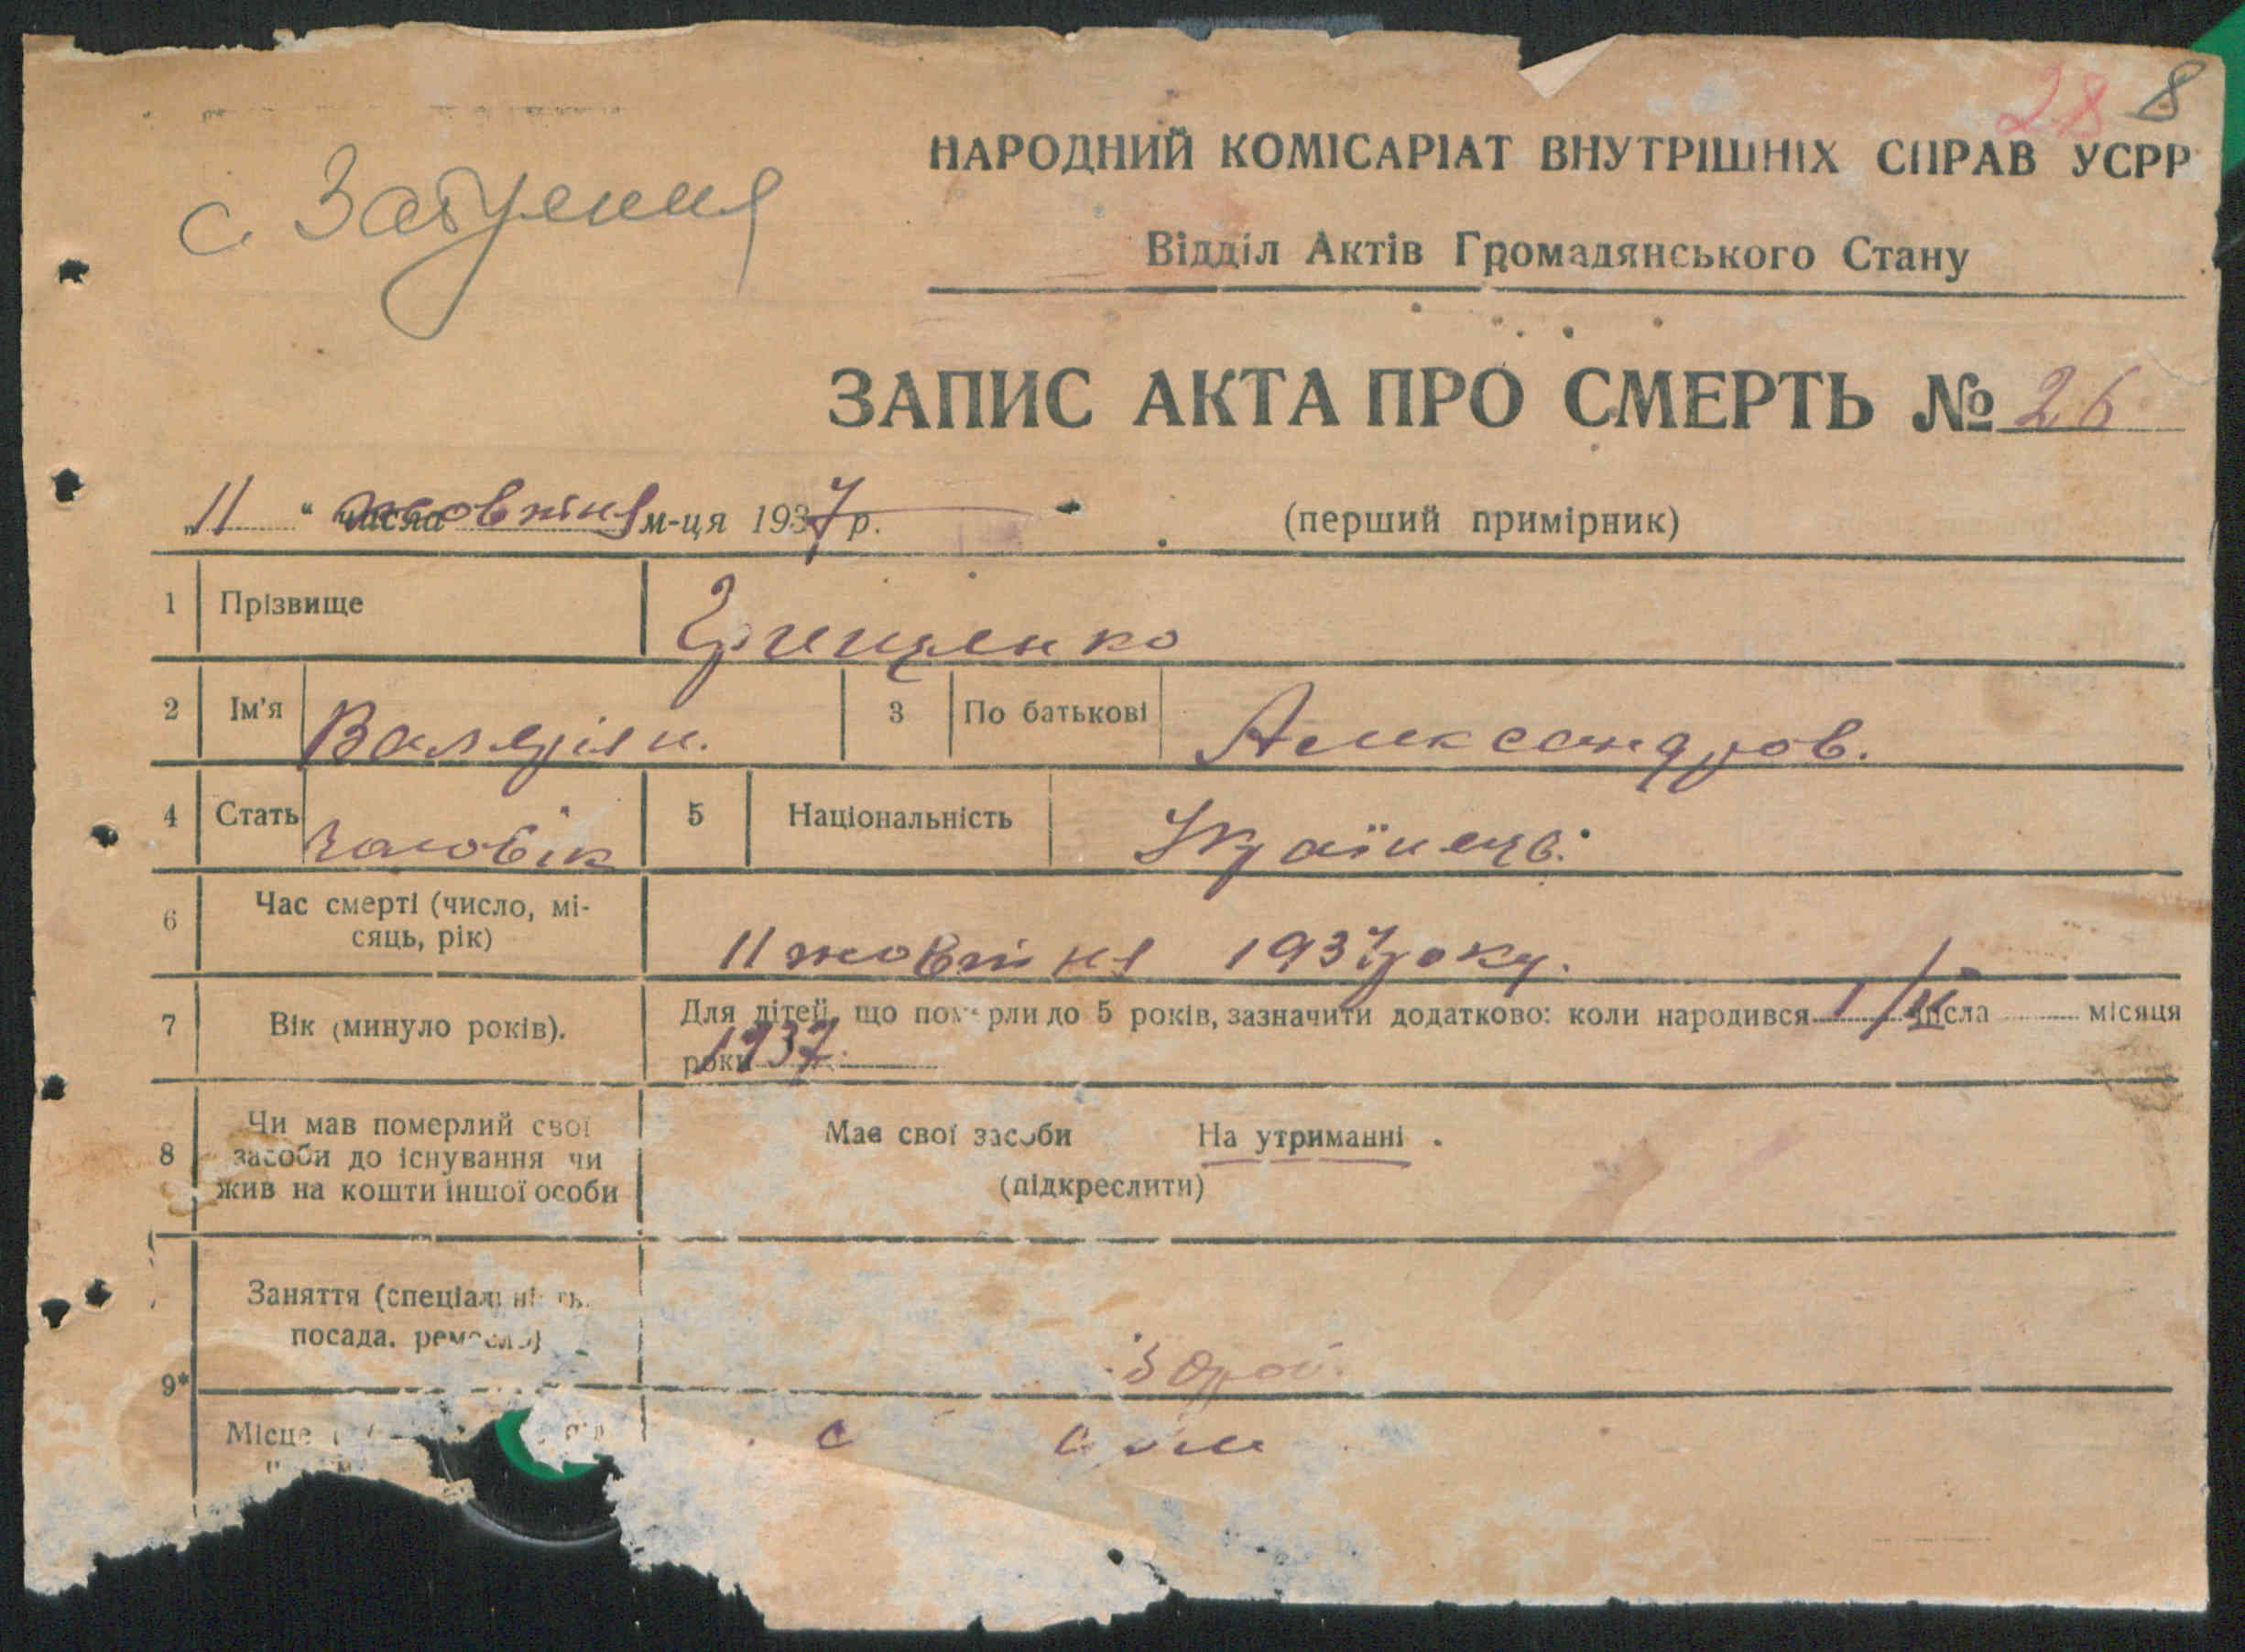 28 8
НАРОДНИЙ КОМІСАРІАТ ВНУТРІШНІХ СПРАВ УСРР
с.
Відділ Актів Громадянського Стану
ЗАПИС АКТА ПРО СМЕРТЬ № 26
„11“ числа жовтня м-ця 1937 р. (перший примірник)
1 Прізвище Грищенко
2 Ім'я Валеріян. 3 По батькові Александров.
4 Стать чоловік 5 Національність Українець.
6 Час смерті (число, мі-
сяць, рік) 11 жовтня 1937 року.
7 Вік (минуло років). Для дітей, що померли до 5 років, зазначити додатково: коли народився 1/ числа місяця
роки 1937.
8 Чи мав померлий свої
засоби до існування чи
жив на кошти іншої особи
Має свої засоби На утриманні
(підкреслити)
Заняття (спеціальність,
посада, ремесло)
9*
Місце